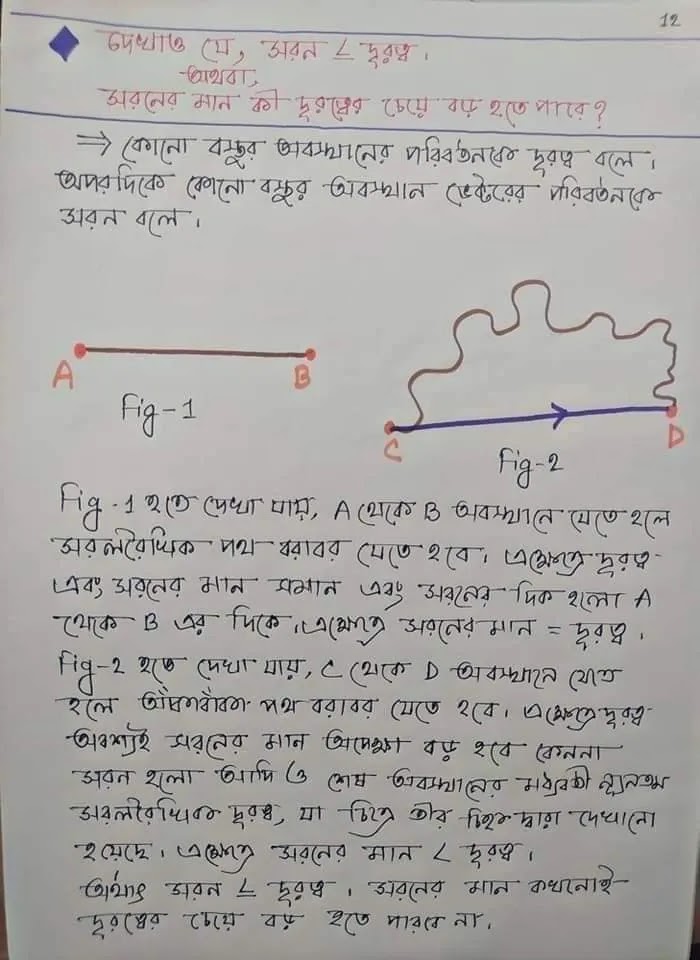 12
দেখাও যে, সরন ∠ দূরত্ব।
অথবা,
সরনের মান কী দূরত্বের চেয়ে বড় হতে পারে?
⇒ কোনো বস্তুর অবস্থানের পরিবর্তনকে দূরত্ব বলে।
অপরদিকে কোনো বস্তুর অবস্থান ভেক্টরের পরিবর্তনকে
সরন বলে।
A
B
Fig-1
C
D
Fig-2
Fig-1 হতে দেখা যায়, A থেকে B অবস্থানে যেতে হলে
সরলরৈখিক পথ বরাবর যেতে হবে। এক্ষেত্রে দূরত্ব
এবং সরনের মান সমান এবং সরনের দিক হলো A
থেকে B এর দিকে। এক্ষেত্রে সরনের মান = দূরত্ব।
Fig-2 হতে দেখা যায়, C থেকে D অবস্থানে যেতে
হলে আঁকাবাঁকা পথ বরাবর যেতে হবে। এক্ষেত্রে দূরত্ব
অবশ্যই সরনের মান অপেক্ষা বড় হবে কেননা
সরন হলো আদি ও শেষ অবস্থানের মধ্যবর্তী ন্যূনতম
সরলরৈখিক দূরত্ব, যা চিত্রে তীর চিহ্ন দ্বারা দেখানো
হয়েছে। এক্ষেত্রে সরনের মান ∠ দূরত্ব।
অর্থাৎ সরন ∠ দূরত্ব। সরনের মান কখনোই
দূরত্বের চেয়ে বড় হতে পারবে না।